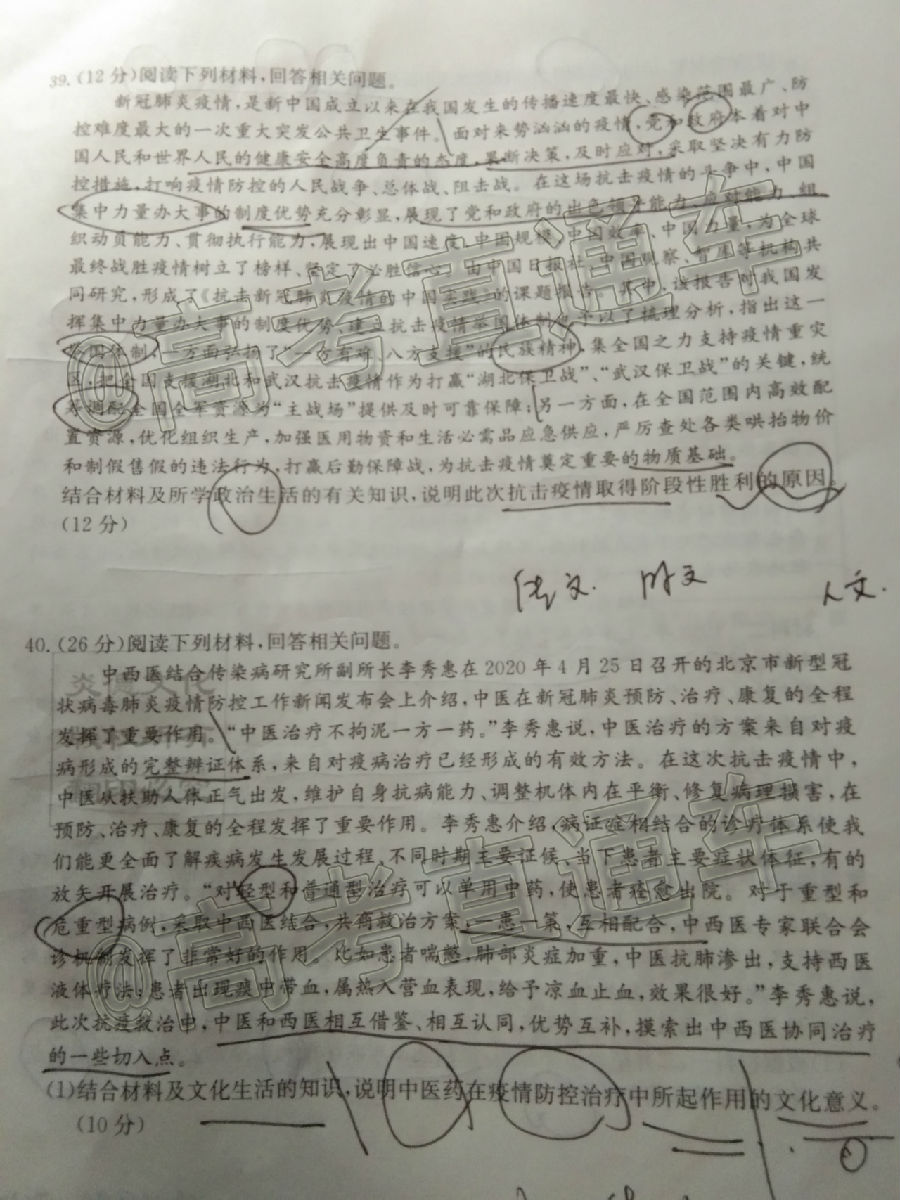 39. (12分)阅读下列材料,回答相关问题。
新冠肺炎疫情,是新中国成立以来在我国发生的传播速度最快、感染范围最广、防
控难度最大的一次重大突发公共卫生事件。面对来势汹汹的疫情,党和政府本着对中
国人民和世界人民的健康安全高度负责的态度,果断决策,及时应对,采取坚决有力防
控措施,打响疫情防控的人民战争、总体战、阻击战。在这场抗击疫情的斗争中,中国
集中力量办大事的制度优势充分彰显,展现了党和政府的出色领导能力、应对能力、组
织动员能力、贯彻执行能力,展现出中国速度、中国规模、中国效率、中国力量,为全球
最终战胜疫情树立了榜样、坚定了必胜信心。由中国日报社、中国观察智库等机构共
同研究,形成了《抗击新冠肺炎疫情的中国实践》的课题报告。其中,该报告对我国发
挥集中力量办大事的制度优势、建立抗击疫情举国体制也予以了梳理分析,指出这一
举国体制,一方面弘扬了“一方有难、八方支援”的民族精神,集全国之力支持疫情重灾
区,把全国支援湖北和武汉抗击疫情作为打赢“湖北保卫战”、“武汉保卫战”的关键,统
筹调配全国全军资源为“主战场”提供及时可靠保障;另一方面,在全国范围内高效配
置资源,优化组织生产,加强医用物资和生活必需品应急供应,严厉查处各类哄抬物价
和制假售假的违法行为,打赢后勤保障战,为抗击疫情奠定重要的物质基础。
结合材料及所学政治生活的有关知识,说明此次抗击疫情取得阶段性胜利的原因。
(12分)
传文. 时文 人文.
40. (26分)阅读下列材料,回答相关问题。
中西医结合传染病研究所副所长李秀惠在2020年4月25日召开的北京市新型冠
状病毒肺炎疫情防控工作新闻发布会上介绍,中医在新冠肺炎预防、治疗、康复的全程
发挥了重要作用。“中医治疗不拘泥一方一药。”李秀惠说,中医治疗的方案来自对疫
病形成的完整辨证体系,来自对疫病治疗已经形成的有效方法。在这次抗击疫情中,
中医从扶助人体正气出发,维护自身抗病能力、调整机体内在平衡、修复病理损害,在
预防、治疗、康复的全程发挥了重要作用。李秀惠介绍,病证症相结合的诊疗体系使我
们能更全面了解疾病发生发展过程、不同时期主要证候、当下患者主要症状体征,有的
放矢开展治疗。“对轻型和普通型治疗可以单用中药,使患者痊愈出院。对于重型和
危重型病例,采取中西医结合,共商救治方案,一患一策,互相配合,中西医专家联合会
诊机制发挥了非常好的作用。比如患者喘憋,肺部炎症加重,中医抗肺渗出,支持西医
液体疗法;患者出现痰中带血,属热入营血表现,给予凉血止血,效果很好。”李秀惠说,
此次抗疫救治中,中医和西医相互借鉴、相互认同,优势互补,摸索出中西医协同治疗
的一些切入点。
(1)结合材料及文化生活的知识,说明中医药在疫情防控治疗中所起作用的文化意义。
(10分)
@高考直通车
@高考直通车